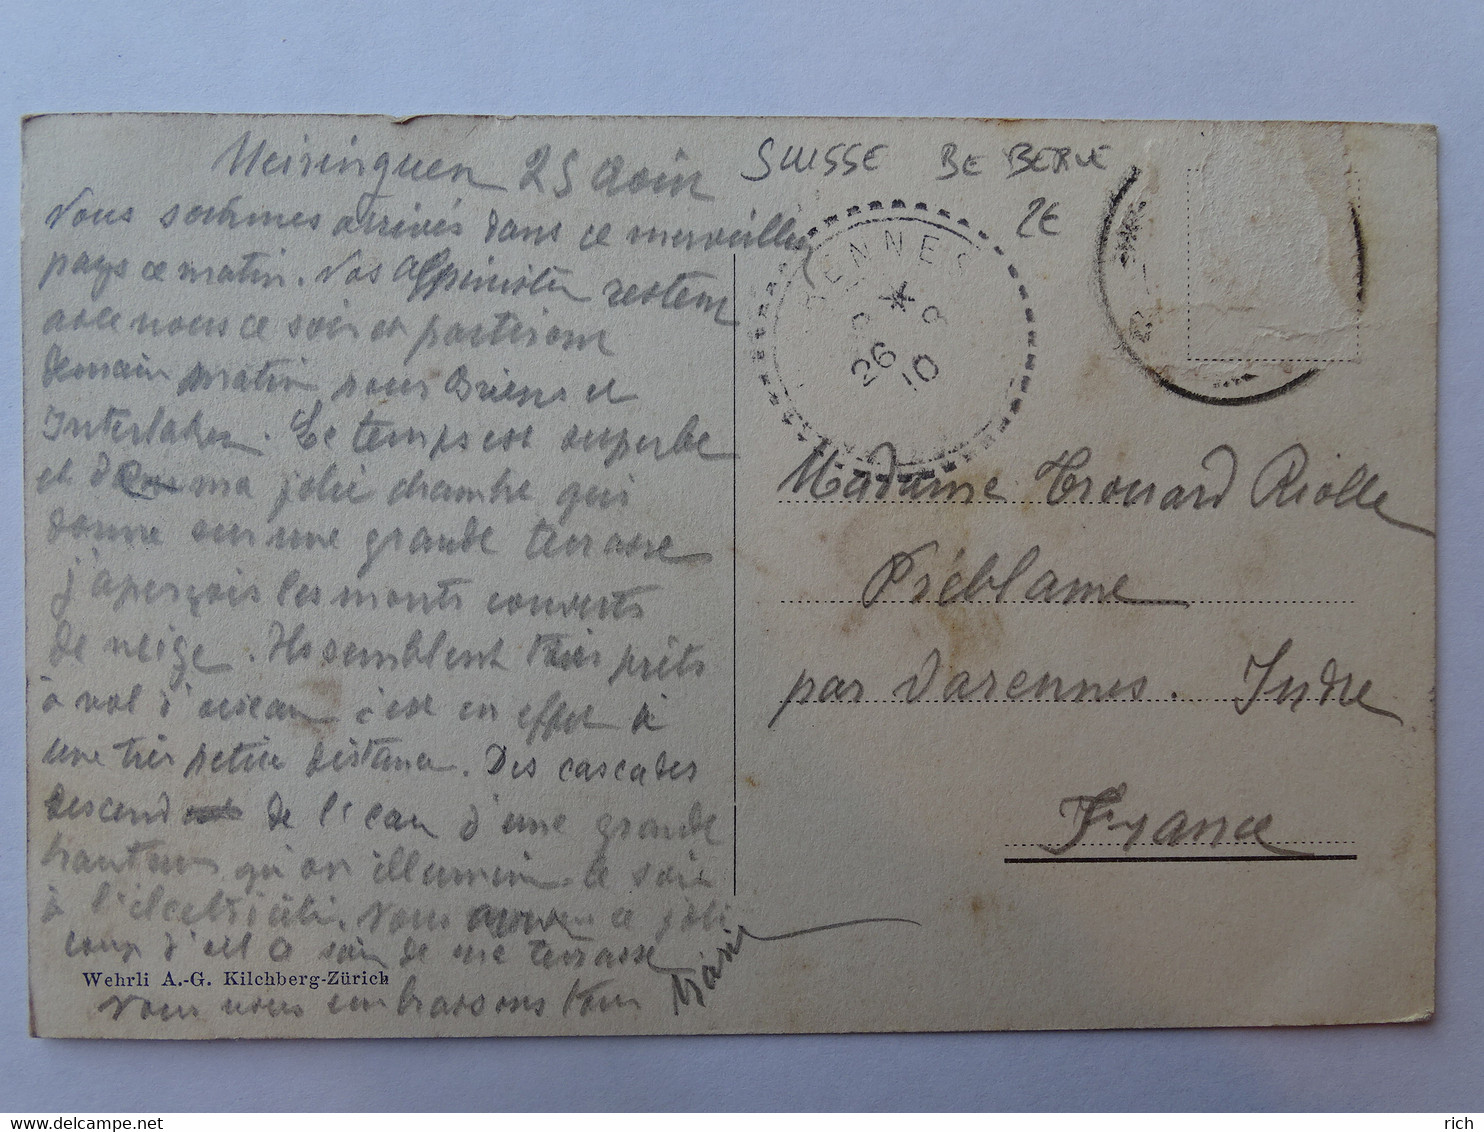 Meiringuen 25 Aoin
SUISSE BE BERNE
2E
Nous sommes arrivés dans ce merveilleux
pays ce matin. Nos Alpinistes restent
avec nous ce soir et partiront
demain matin pour Brienz et
Interlaken. Le temps est superbe
et de ma jolie chambre qui
donne sur une grande terrasse
j'aperçois les monts couverts
de neige. Ils semblent très près
à vol d'oiseau c'est en effet à
une très petite distance. Des cascades
descend de l'eau d'une grande
hauteur qu'on illumine le soir
à l'électricité. Nous aurons ce joli
coup d'œil ce soir de ma terrasse
Wehrli A.-G. Kilchberg-Zürich
Nous vous embrassons tous
Marie
VARENNES
26
8
10
Madame Trouard Riolle
Préblame
par Varennes. Indre
France
delcampe.net
rich